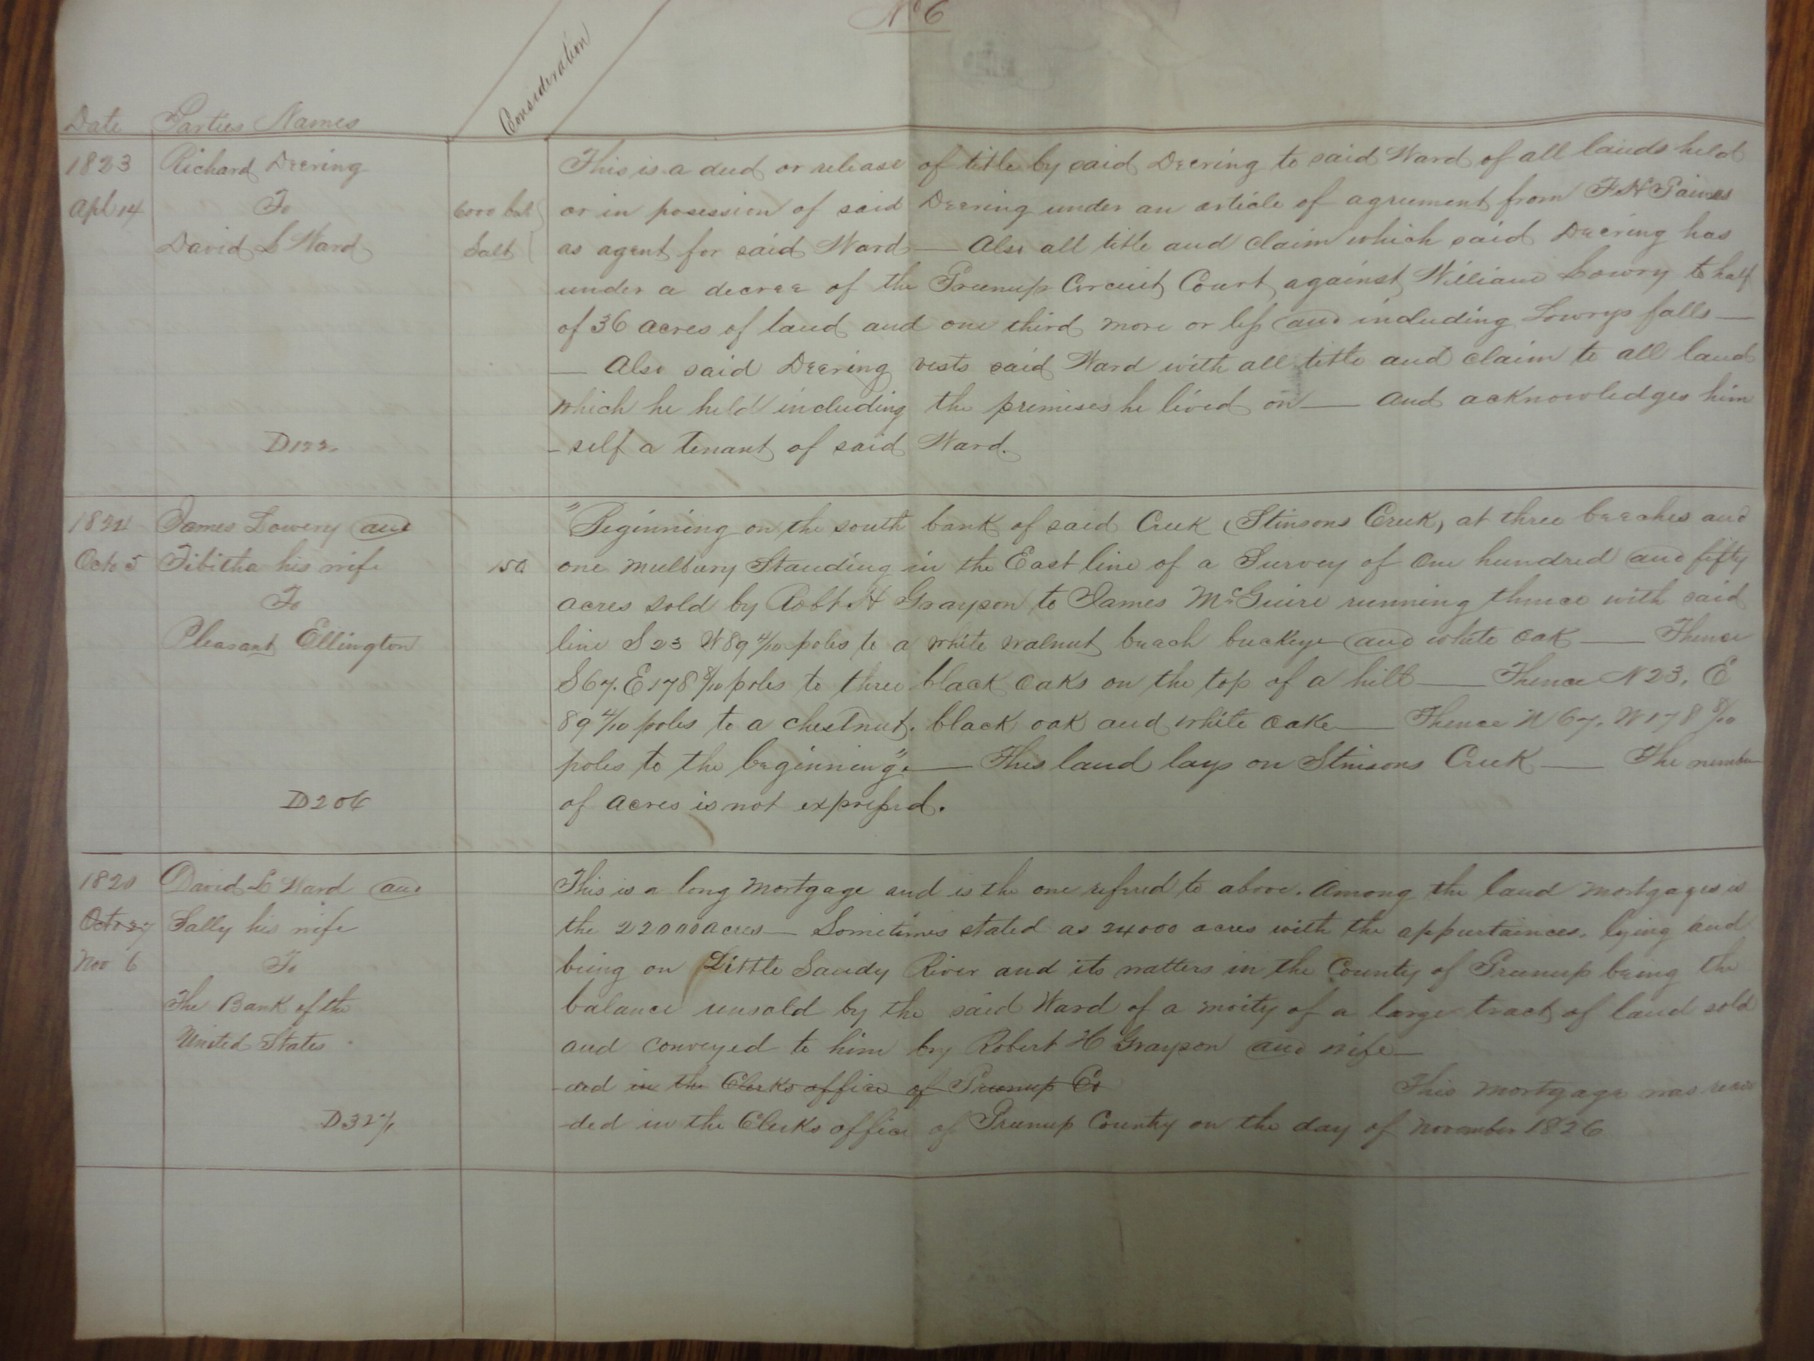 No 6
Date Parties Names Consideration
1823 Richard Deering This is a deed or release of title by said Deering to said Ward of all lands held
Apl 14 To 6000 bul or in posession of said Deering under an article of agreement from
David L Ward Salt as agent for said Ward — Also all title and claim which said Deering has
under a decree of the Greenup Circuit Court against William Lowry to half
of 36 acres of land and one third more or less and including Lowrys falls —
— Also said Deering vests said Ward with all title and claim to all land
which he held including the premises he lived on — and acknowledges him
-self a tenant of said Ward.
D122
1824 James Lowery and "Beginning on the south bank of said Creek (Stinsons Creek) at three beeches and
Octr 5 Tibitha his wife 150 one mulbury Standing in the East line of a Survey of one hundred and fifty
To acres sold by Robt H Grayson to James McGuire running thence with said
Pleasant Ellington line S 23 W 89 4/10 poles to a white walnut beach buckeye and white oak — Thence
S 67. E 178 8/10 poles to three black oaks on the top of a hill — Thence N 23. E
89 4/10 poles to a chestnut. black oak and white oake — Thence N 67. W 178 8/10
poles to the beginning". — This land lays on Stinsons Creek — The number
D206 of acres is not expressed.
1820 David L Ward and This is a long mortgage and is the one refered to above. Among the land mortgages is
Octr 27 Sally his wife the 22000 acres — Sometimes stated as 24000 acres with the appurtainces, lying and
Nov 6 To being on Little Sandy River and its watters in the County of Greenup being the
The Bank of the balance unsold by the said Ward of a moity of a large tract of land sold
United States and conveyed to him by Robert H Grayson and wife —
-ded in the Clerks office of Greenup Co This mortgage was recor
D327 -ded in the Clerks office of Greenup County on the day of November 1826